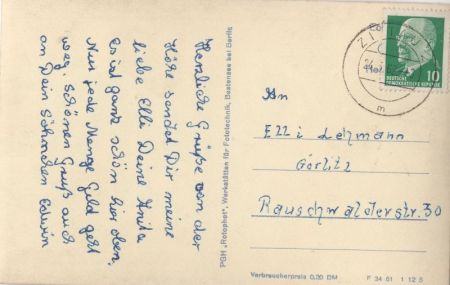 Herzliche Grüße von der
Höhe sendet Dir meine
liebe Elli Deine Anita
es ist ganz schön hier oben,
Nur jede Menge Geld geht
weg. schönen Gruß auch
an Dein Söhnchen Edwin
PGH „Rotophot", Werkstätten für Fototechnik, Bestensee bei Berlin
DEUTSCHE
DEMOKRATISCHE REPUBLIK
10
m
An
Elli Lehmann
Görlitz
Rauschwalderstr. 30
Verbraucherpreis 0,20 DM
F 34 61 1 12 S